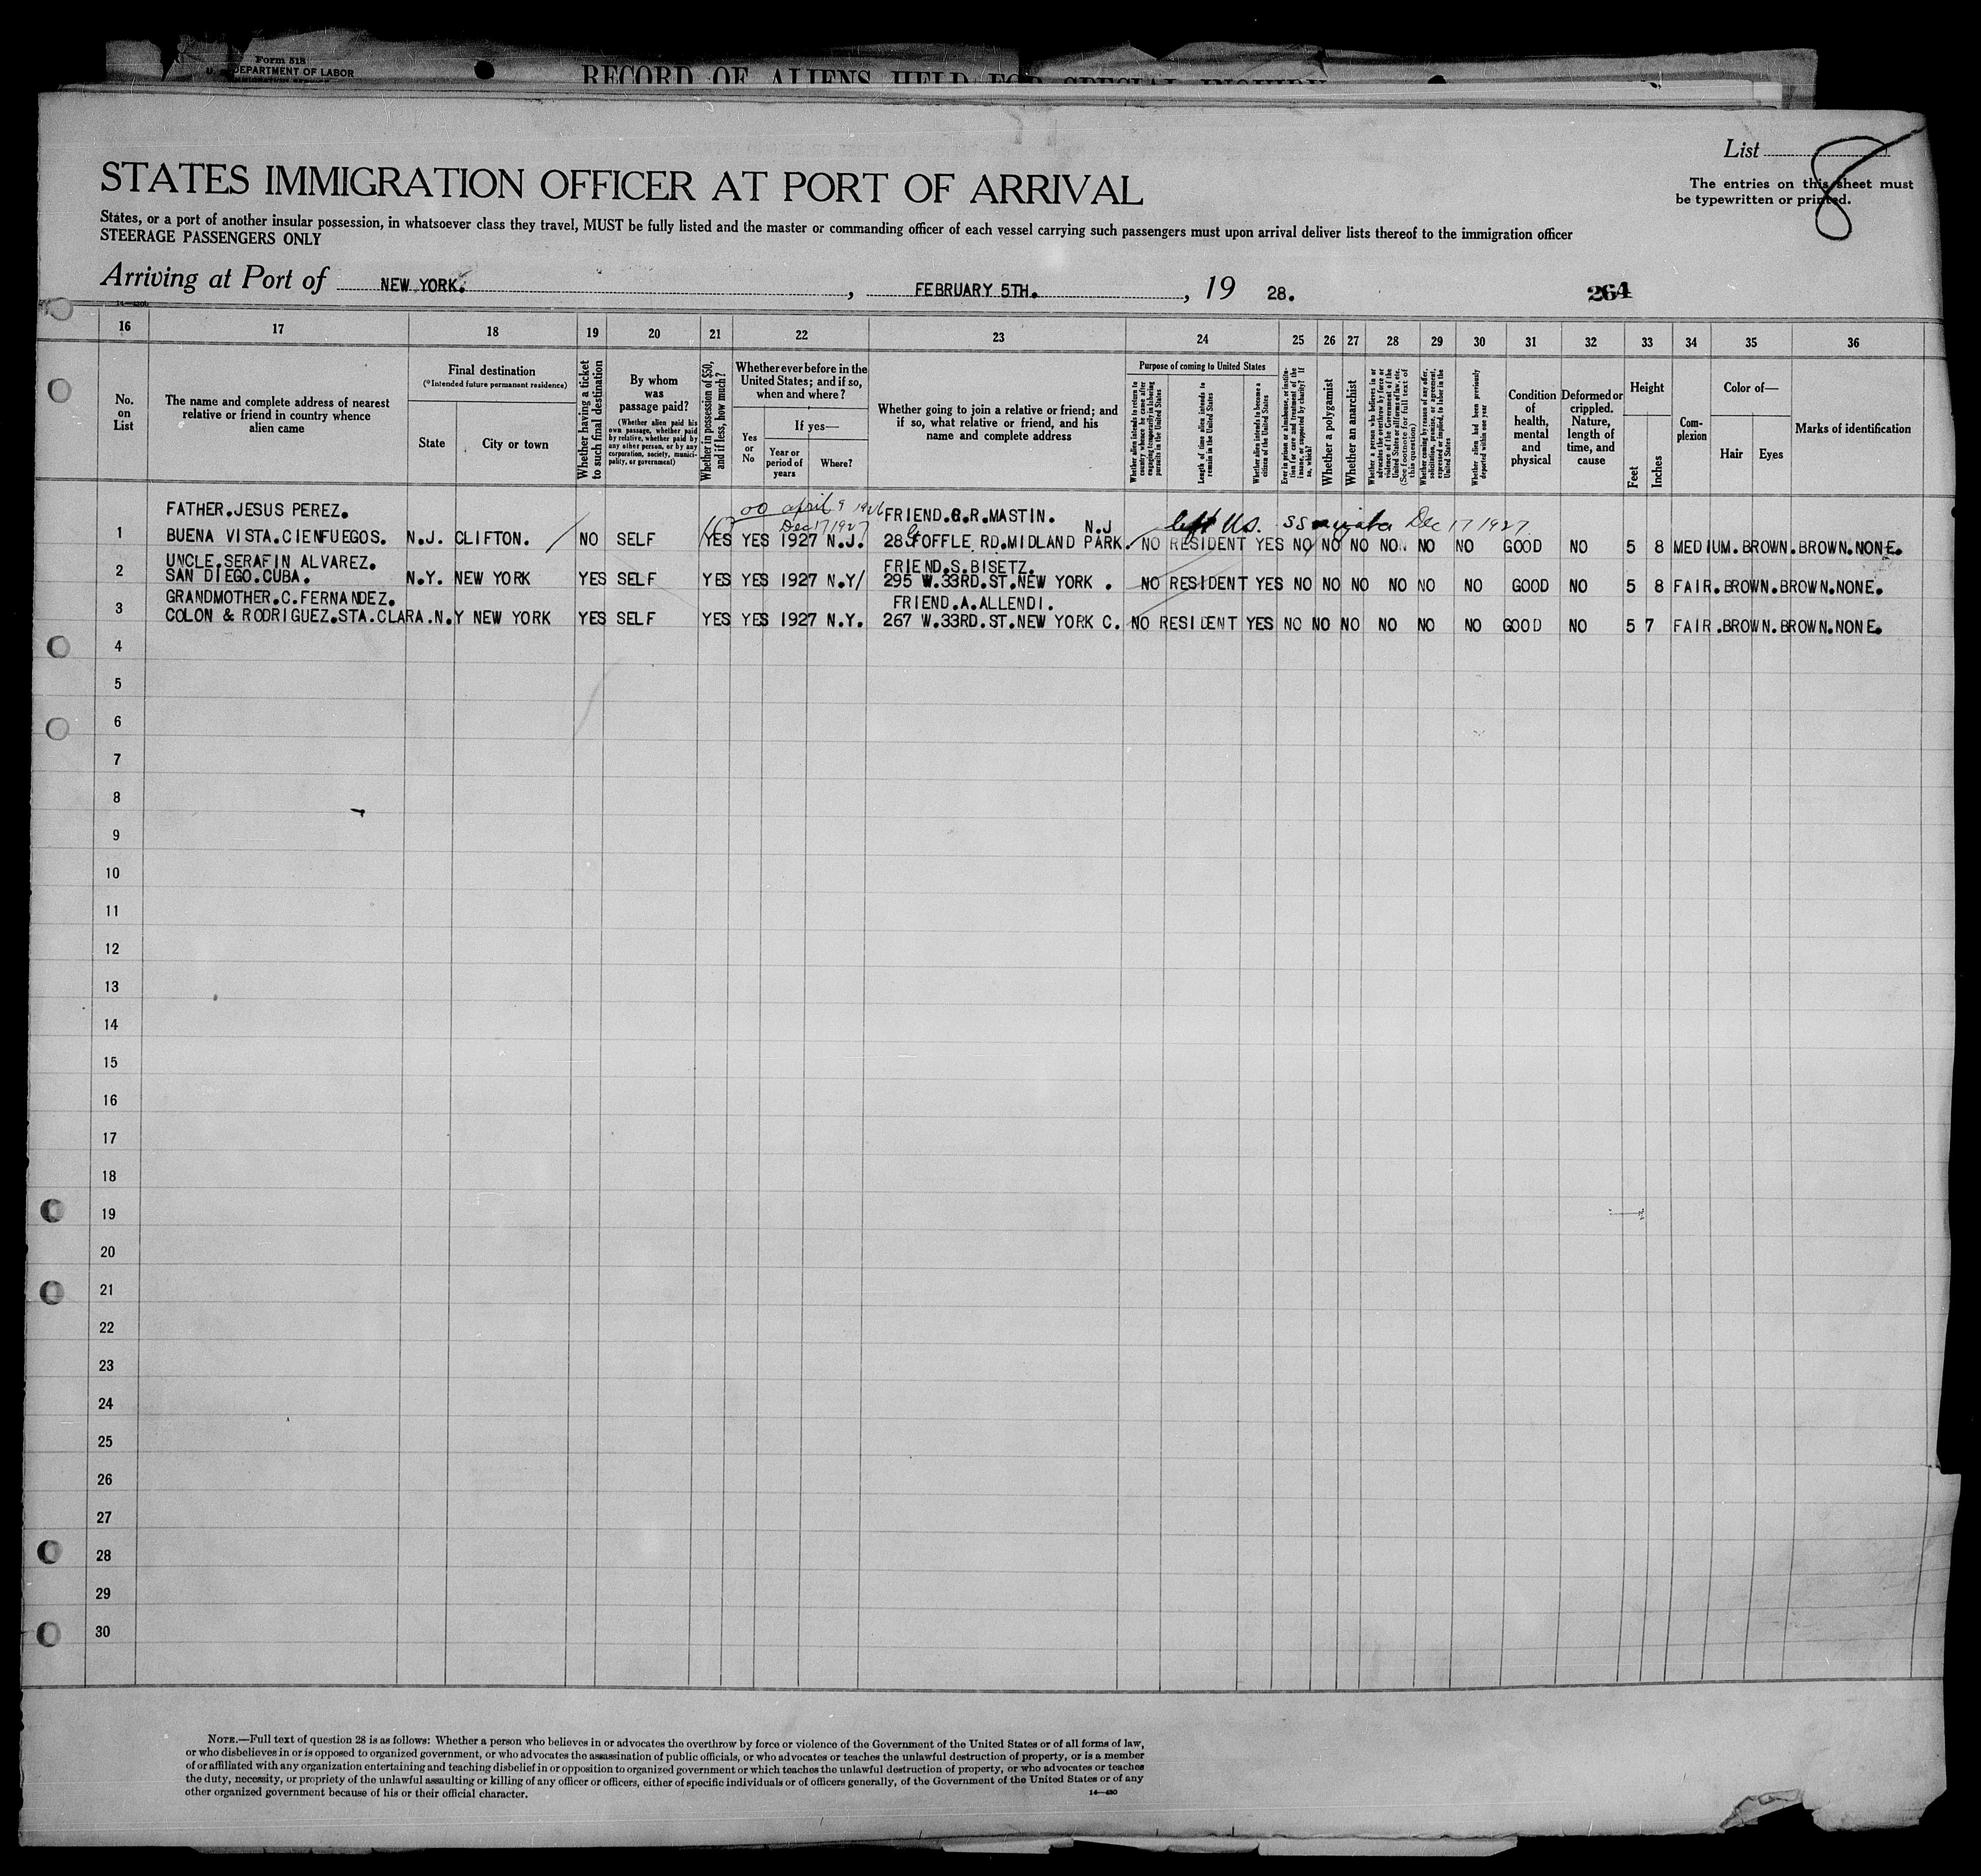 Form 518
U. S. DEPARTMENT OF LABOR
RECORD OF ALIENS HELD FOR SPECIAL INQUIRY
List 8
The entries on this sheet must
be typewritten or printed.
STATES IMMIGRATION OFFICER AT PORT OF ARRIVAL
States, or a port of another insular possession, in whatsoever class they travel, MUST be fully listed and the master or commanding officer of each vessel carrying such passengers must upon arrival deliver lists thereof to the immigration officer
STEERAGE PASSENGERS ONLY
Arriving at Port of NEW YORK. , FEBRUARY 5TH. , 19 28. 264
16 17 18 19 20 21 22 23 24 25 26 27 28 29 30 31 32 33 34 35 36
No. on List
The name and complete address of nearest relative or friend in country whence alien came
Final destination
(*Intended future permanent residence)
State
City or town
Whether having a ticket to such final destination
By whom was passage paid?
(Whether alien paid his own passage, whether paid by relative, whether paid by any other person, or by any corporation, society, municipality, or government)
Whether in possession of $50, and if less, how much?
Whether ever before in the United States; and if so, when and where?
Yes or No
If yes—
Year or period of years
Where?
Whether going to join a relative or friend; and if so, what relative or friend, and his name and complete address
Purpose of coming to United States
Whether alien intends to return to country whence he came after engaging temporarily in laboring pursuits in the United States
Length of time alien intends to remain in the United States
Whether alien intends to become a citizen of the United States
Ever in prison or almshouse, or institution for care and treatment of the insane, or supported by charity? If so, which?
Whether a polygamist
Whether an anarchist
Whether a person who believes in or advocates the overthrow by force or violence of the Government of the United States or all forms of law, etc. (See footnote for full text of this question)
Whether coming by reason of any offer, solicitation, promise, or agreement, expressed or implied, to labor in the United States
Whether alien had been previously deported within one year
Condition of health, mental and physical
Deformed or crippled. Nature, length of time, and cause
Height
Feet
Inches
Complexion
Color of—
Hair
Eyes
Marks of identification
april 9 1926
Dec 17 1927
left U.S. SS Dec 17 1927.
FATHER.JESUS PEREZ. FRIEND.B.R.MASTIN. N.J
1 BUENA VISTA.CIENFUEGOS. N.J. CLIFTON. NO SELF YES YES 1927 N.J. 28 GOFFLE RD.MIDLAND PARK. NO RESIDENT YES NO NO NO NO NO NO GOOD NO 5 8 MEDIUM.BROWN.BROWN.NONE.
UNCLE.SERAFIN ALVAREZ. FRIEND.S.BISETZ.
2 SAN DIEGO.CUBA. N.Y. NEW YORK YES SELF YES YES 1927 N.Y/ 295 W.33RD.ST.NEW YORK . NO RESIDENT YES NO NO NO NO NO NO GOOD NO 5 8 FAIR.BROWN.BROWN.NONE.
GRANDMOTHER.C.FERNANDEZ. FRIEND.A.ALLENDI.
3 COLON & RODRIGUEZ.STA.CLARA.N.Y NEW YORK YES SELF YES YES 1927 N.Y. 267 W.33RD.ST.NEW YORK C. NO RESIDENT YES NO NO NO NO NO NO GOOD NO 5 7 FAIR.BROWN.BROWN.NONE.
4
5
6
7
8
9
10
11
12
13
14
15
16
17
18
19
20
21
22
23
24
25
26
27
28
29
30
NOTE.—Full text of question 28 is as follows: Whether a person who believes in or advocates the overthrow by force or violence of the Government of the United States or of all forms of law,
or who disbelieves in or is opposed to organized government, or who advocates the assassination of public officials, or who advocates or teaches the unlawful destruction of property, or is a member
of or affiliated with any organization entertaining and teaching disbelief in or opposition to organized government or which teaches the unlawful destruction of property, or who advocates or teaches
the duty, necessity, or propriety of the unlawful assaulting or killing of any officer or officers, either of specific individuals or of officers generally, of the Government of the United States or of any
other organized government because of his or their official character.
14—430